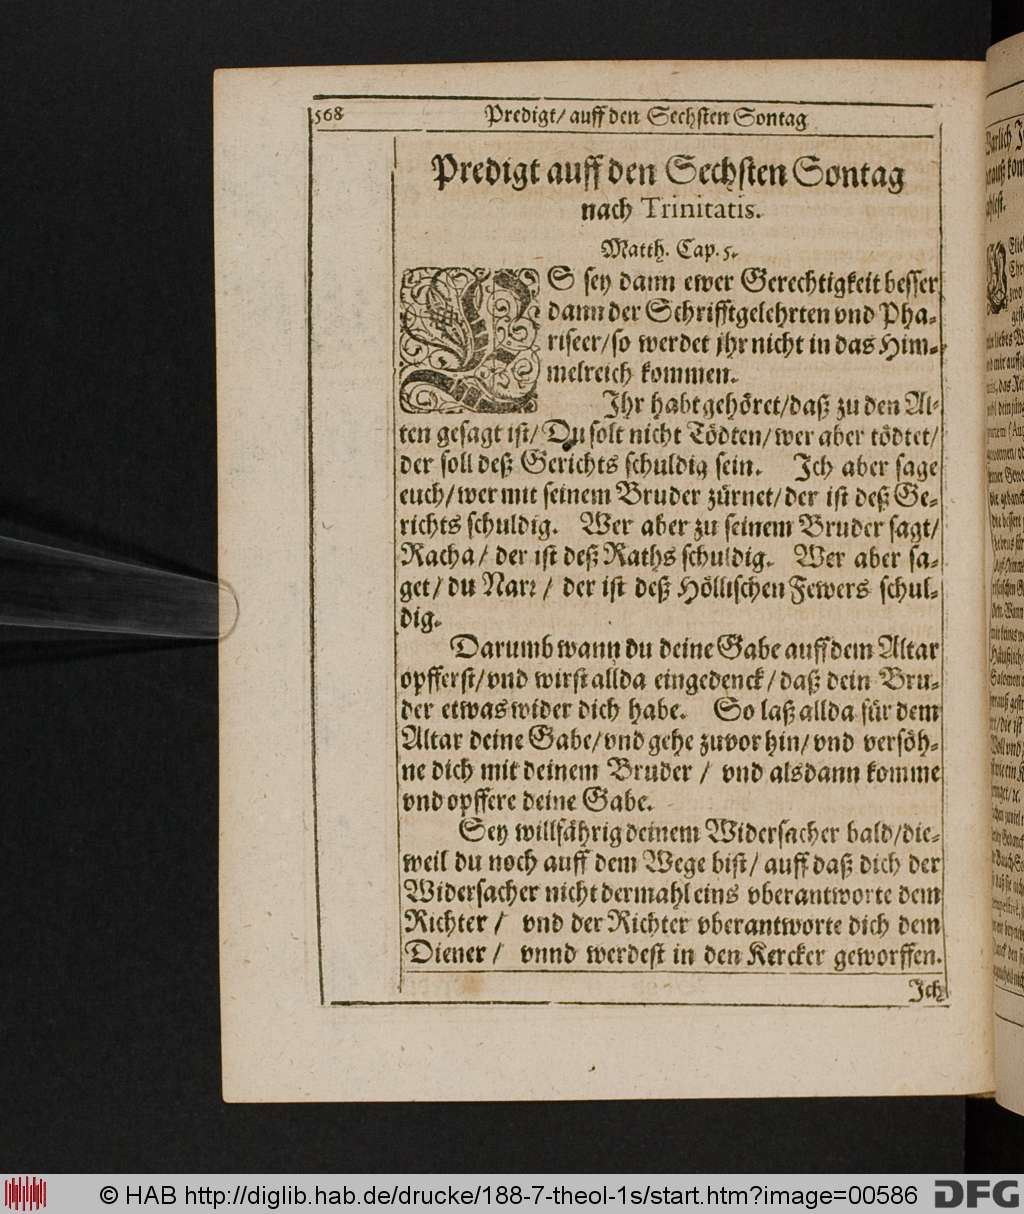 568
Predigt/ auff den Sechsten Sontag
Predigt auff den Sechsten Sontag
nach Trinitatis.
Matth. Cap. 5.
ES sey dann ewer Gerechtigkeit besser
dann der Schrifftgelehrten vnd Pha-
riseer/so werdet jhr nicht in das Him-
melreich kommen.
Ihr habt gehöret/daß zu den Al-
ten gesagt ist/ Du solt nicht Tödten/wer aber tödtet/
der soll deß Gerichts schuldig sein. Ich aber sage
euch/wer mit seinem Bruder zürnet/der ist deß Ge-
richts schuldig. Wer aber zu seinem Bruder sagt/
Racha/ der ist deß Raths schuldig. Wer aber sa-
get/du Narr/ der ist deß Höllischen Fewers schul-
dig.
Darumb wann du deine Gabe auff dem Altar
opfferst/vnd wirst allda eingedenck/daß dein Bru-
der etwas wider dich habe. So laß allda für dem
Altar deine Gabe/vnd gehe zuvor hin/vnd versöh-
ne dich mit deinem Bruder/ vnd alsdann komme
vnd opffere deine Gabe.
Sey willfährig deinem Widersacher bald/die-
weil du noch auff dem Wege bist/ auff daß dich der
Widersacher nicht dermahl eins vberantworte dem
Richter/ vnd der Richter vberantworte dich dem
Diener/ vnnd werdest in den Kercker geworffen.
Ich
© HAB http://diglib.hab.de/drucke/188-7-theol-1s/start.htm?image=00586
DFG